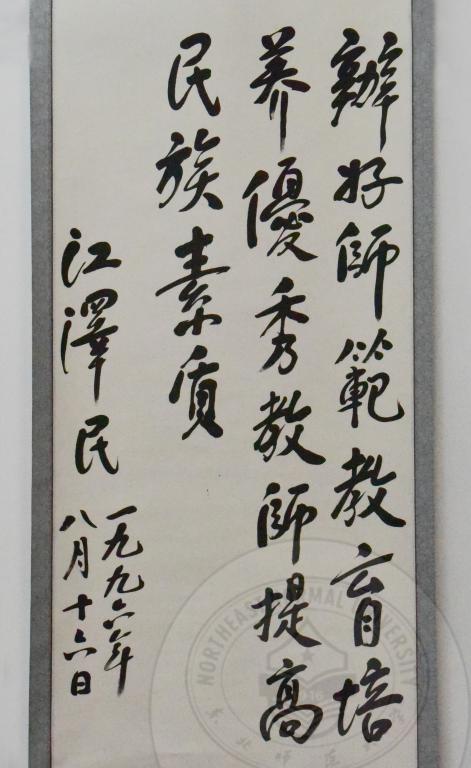 辦好師範教育培
养優秀教師提高
民族素质
江澤民
一九九六年
八月十六日
NORTHEAST NORMAL UNIVERSITY